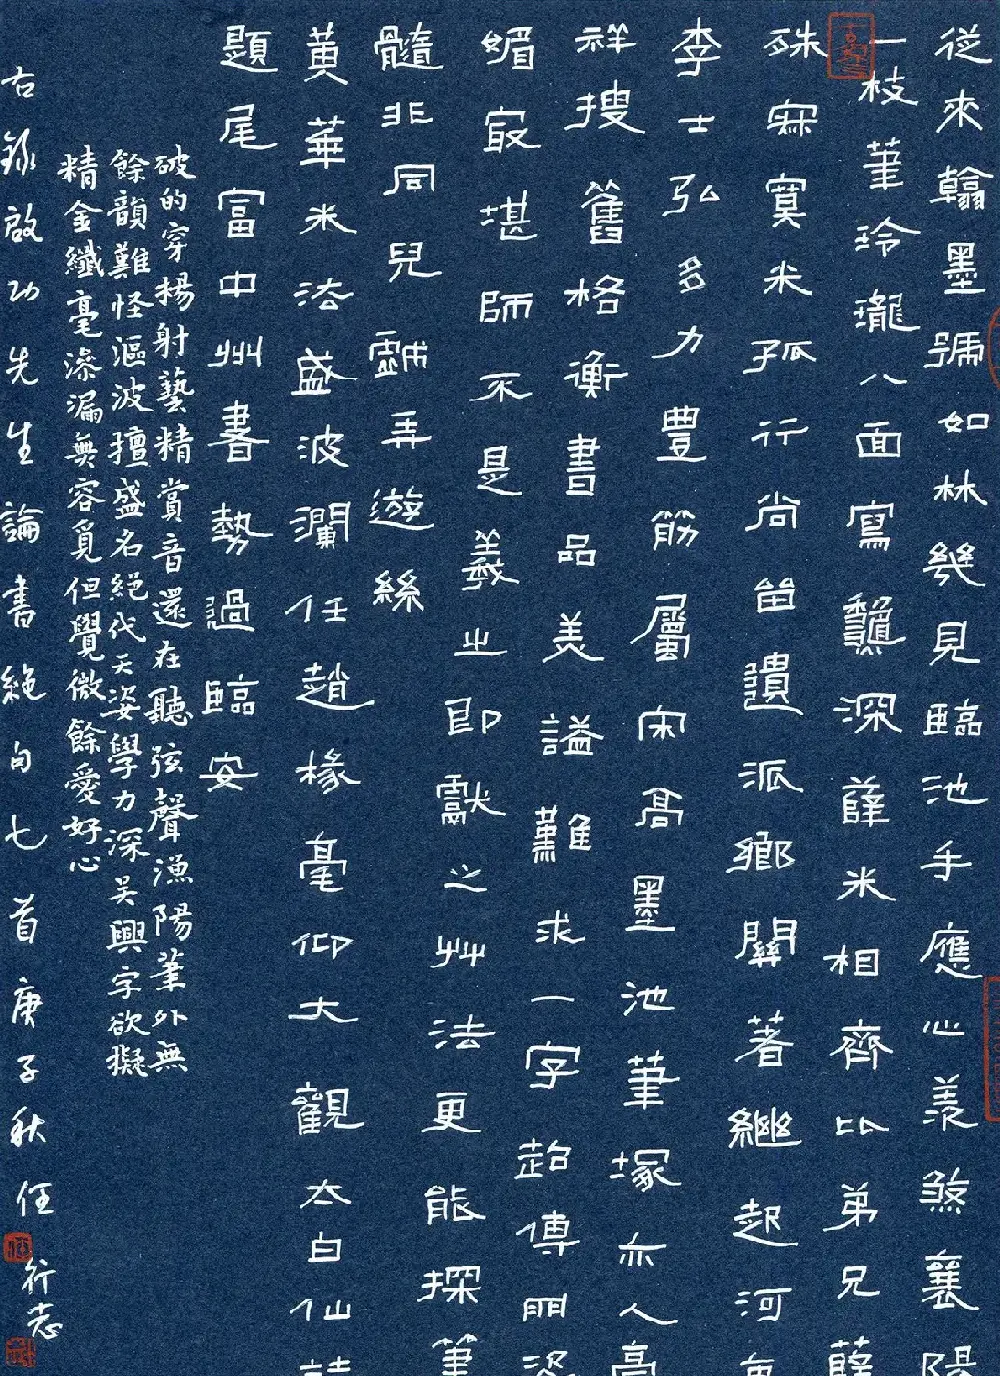 從來翰墨號如林幾見臨池手應心羨煞襄陽
一枝筆玲瓏八面寫龢深薛米相齊比弟兄薛
殊寐寞米孤行尚留遺派鄉關著繼起河東
李士弘多力豐筋屬宋高墨池筆塚亦人豪
祥搜舊格衡書品美謚難求一字超傳朋姿
媚寂堪師不是羲之即獻之艸法更能探筆
髓非同兒戲弄遊絲
黃華米法盛波瀾任趙椽毫仰大觀太白仙詩
題尾富中州書勢過臨安
破的穿楊射藝精賞音還在聽弦聲漁陽筆外無
餘韻難怪漚波擅盛名絕代天姿學力深吳興字欲擬
精金纖毫滲漏無容覓但覺微餘愛好心
右錄啟功先生論書絕句七首庚子秋任
行志